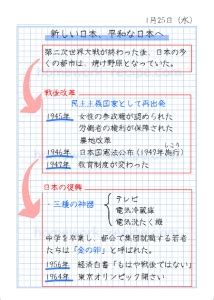 1月25日（水）
新しい日本、平和な日本へ
第二次世界大戦が終わった後、日本の多
くの都市は、焼け野原となっていた。
戦後改革
民主主義国家として再出発
1945年 女性の参政権が認められた
労働者の権利が保障された
農地改革
1946年 日本国憲法公布（1947年施行）
1947年 教育制度が変わった
日本の復興
・三種の神器
テレビ
電気冷蔵庫
電気洗たく機
中学を卒業し、都会で集団就職する若者
たちは「金の卵」と呼ばれた。
1956年 経済白書「もはや戦後ではない」
1964年 東京オリンピック開さい